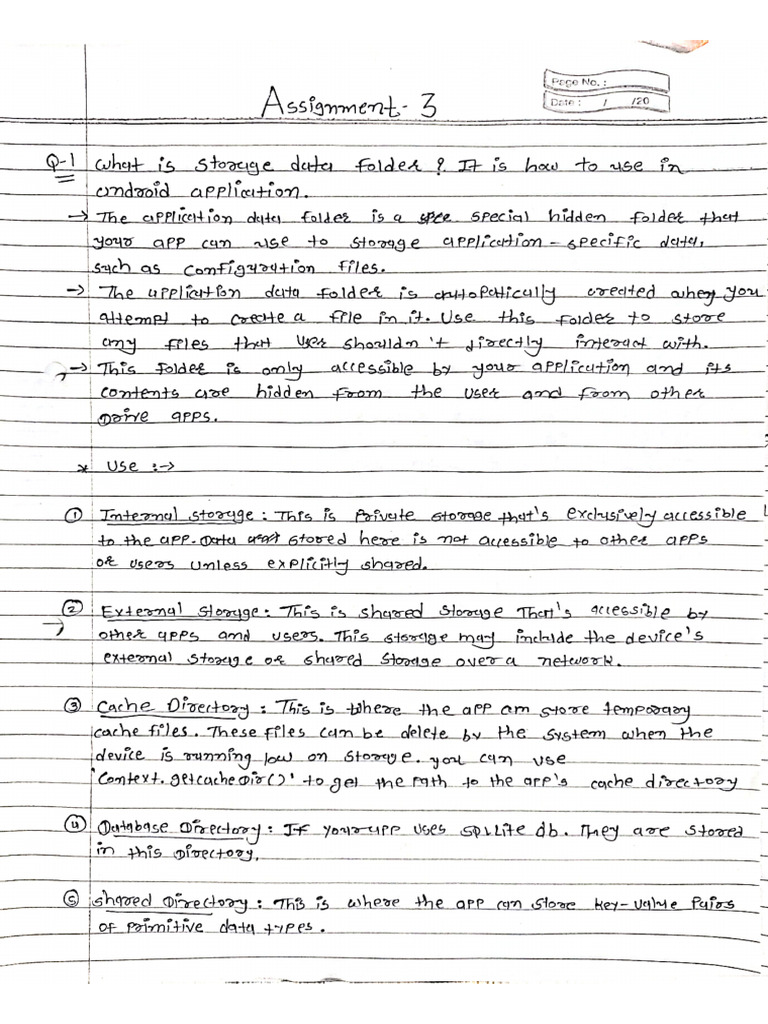 Page No. :
Date : / /20
Assignment - 3
Q-1 What is storage data folder? It is how to use in
android application.
→ The application data folder is a special hidden folder that
your app can use to storage application - specific data,
such as configuration files.
→ The application data folder is autopatically created when you
attempt to create a file in it. Use this folder to store
any files that user shouldn't directly interact with.
→ This folder is only accessible by your application and its
contents are hidden from the user and from other
Drive apps.
* Use :→
① Internal storage : This is Private storage that's exclusively accessible
to the app. Data stored here is not accessible to other apps
or users unless explicitly shared.
② External Storage : This is shared storage That's accessible by
other apps and users. This storage may include the device's
external storage or shared storage over a network.
③ Cache Directory : This is where the app am store temporary
cache files. These files can be delete by the system when the
device is running low on storage. you can use
'Context.getcacheDir()' to get the path to the app's cache directory
④ Database Directory : If your app uses SQLLite db. They are stored
in this Directory.
⑤ shared Directory : This is where the app can store key-value Pairs
of primitive data types.